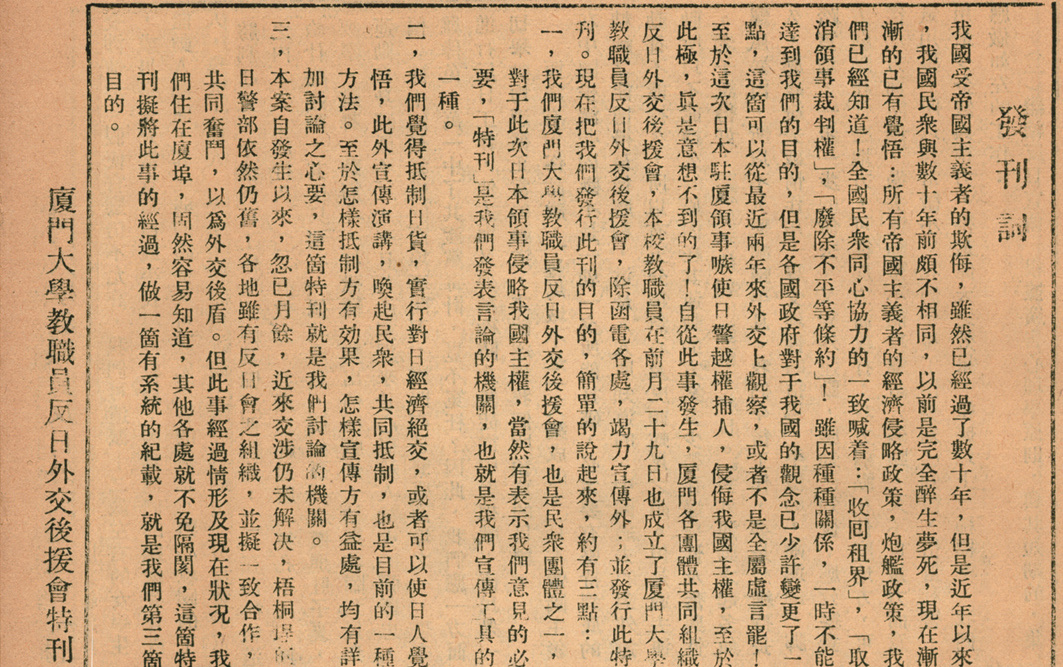 發刊詞
我國受帝國主義者的欺侮，雖然已經過了數十年，但是近年以來
，我國民衆與數十年前頗不相同，以前是完全醉生夢死，現在漸
漸的已有覺悟：所有帝國主義者的經濟侵略政策，炮艦政策，我
們已經知道！全國民衆同心協力的一致喊着：「收回租界」，「取
消領事裁判權」，「廢除不平等條約」！雖因種種關係，一時不能
達到我們的目的，但是各國政府對于我國的觀念已少許變更了一
點，這箇可以從最近兩年來外交上觀察，或者不是全屬虛言罷！
至於這次日本駐廈領事嗾使日警越權捕人，侵侮我國主權，至於
此極，眞是意想不到的了！自從此事發生，厦門各團體共同組織
反日外交後援會，本校教職員在前月二十九日也成立了厦門大學
教職員反日外交後援會，除函電各處，竭力宣傳外；並發行此特
刋。現在把我們發行此刊的目的，簡單的說起來，約有三點：
一，我們廈門大學教職員反日外交後援會，也是民衆團體之一，
對于此次日本領事侵略我國主權，當然有表示我們意見的必
要，「特刊」是我們發表言論的機關，也就是我們宣傳工具的
一種。
二，我們覺得抵制日貨，實行對日經濟絕交，或者可以使日人覺
悟，此外宣傳演講，喚起民衆，共同抵制，也是目前的一種
方法。至於怎樣抵制方有效果，怎樣宣傳方有益處，均有詳
加討論之心要，這箇特刊就是我們討論的機關。
三，本案自發生以來，忽已月餘，近來交涉仍未解决，梧桐埕的
日警部依然仍舊，各地雖有反日會之組織，並擬一致合作，
共同奮鬥，以爲外交後盾。但此事經過情形及現在狀况，我
們住在廈埠，固然容易知道，其他各處就不免隔閡，這箇特
刊擬將此事的經過，做一箇有系統的紀載，就是我們第三箇
目的。
廈門大學教職員反日外交後援會特刊